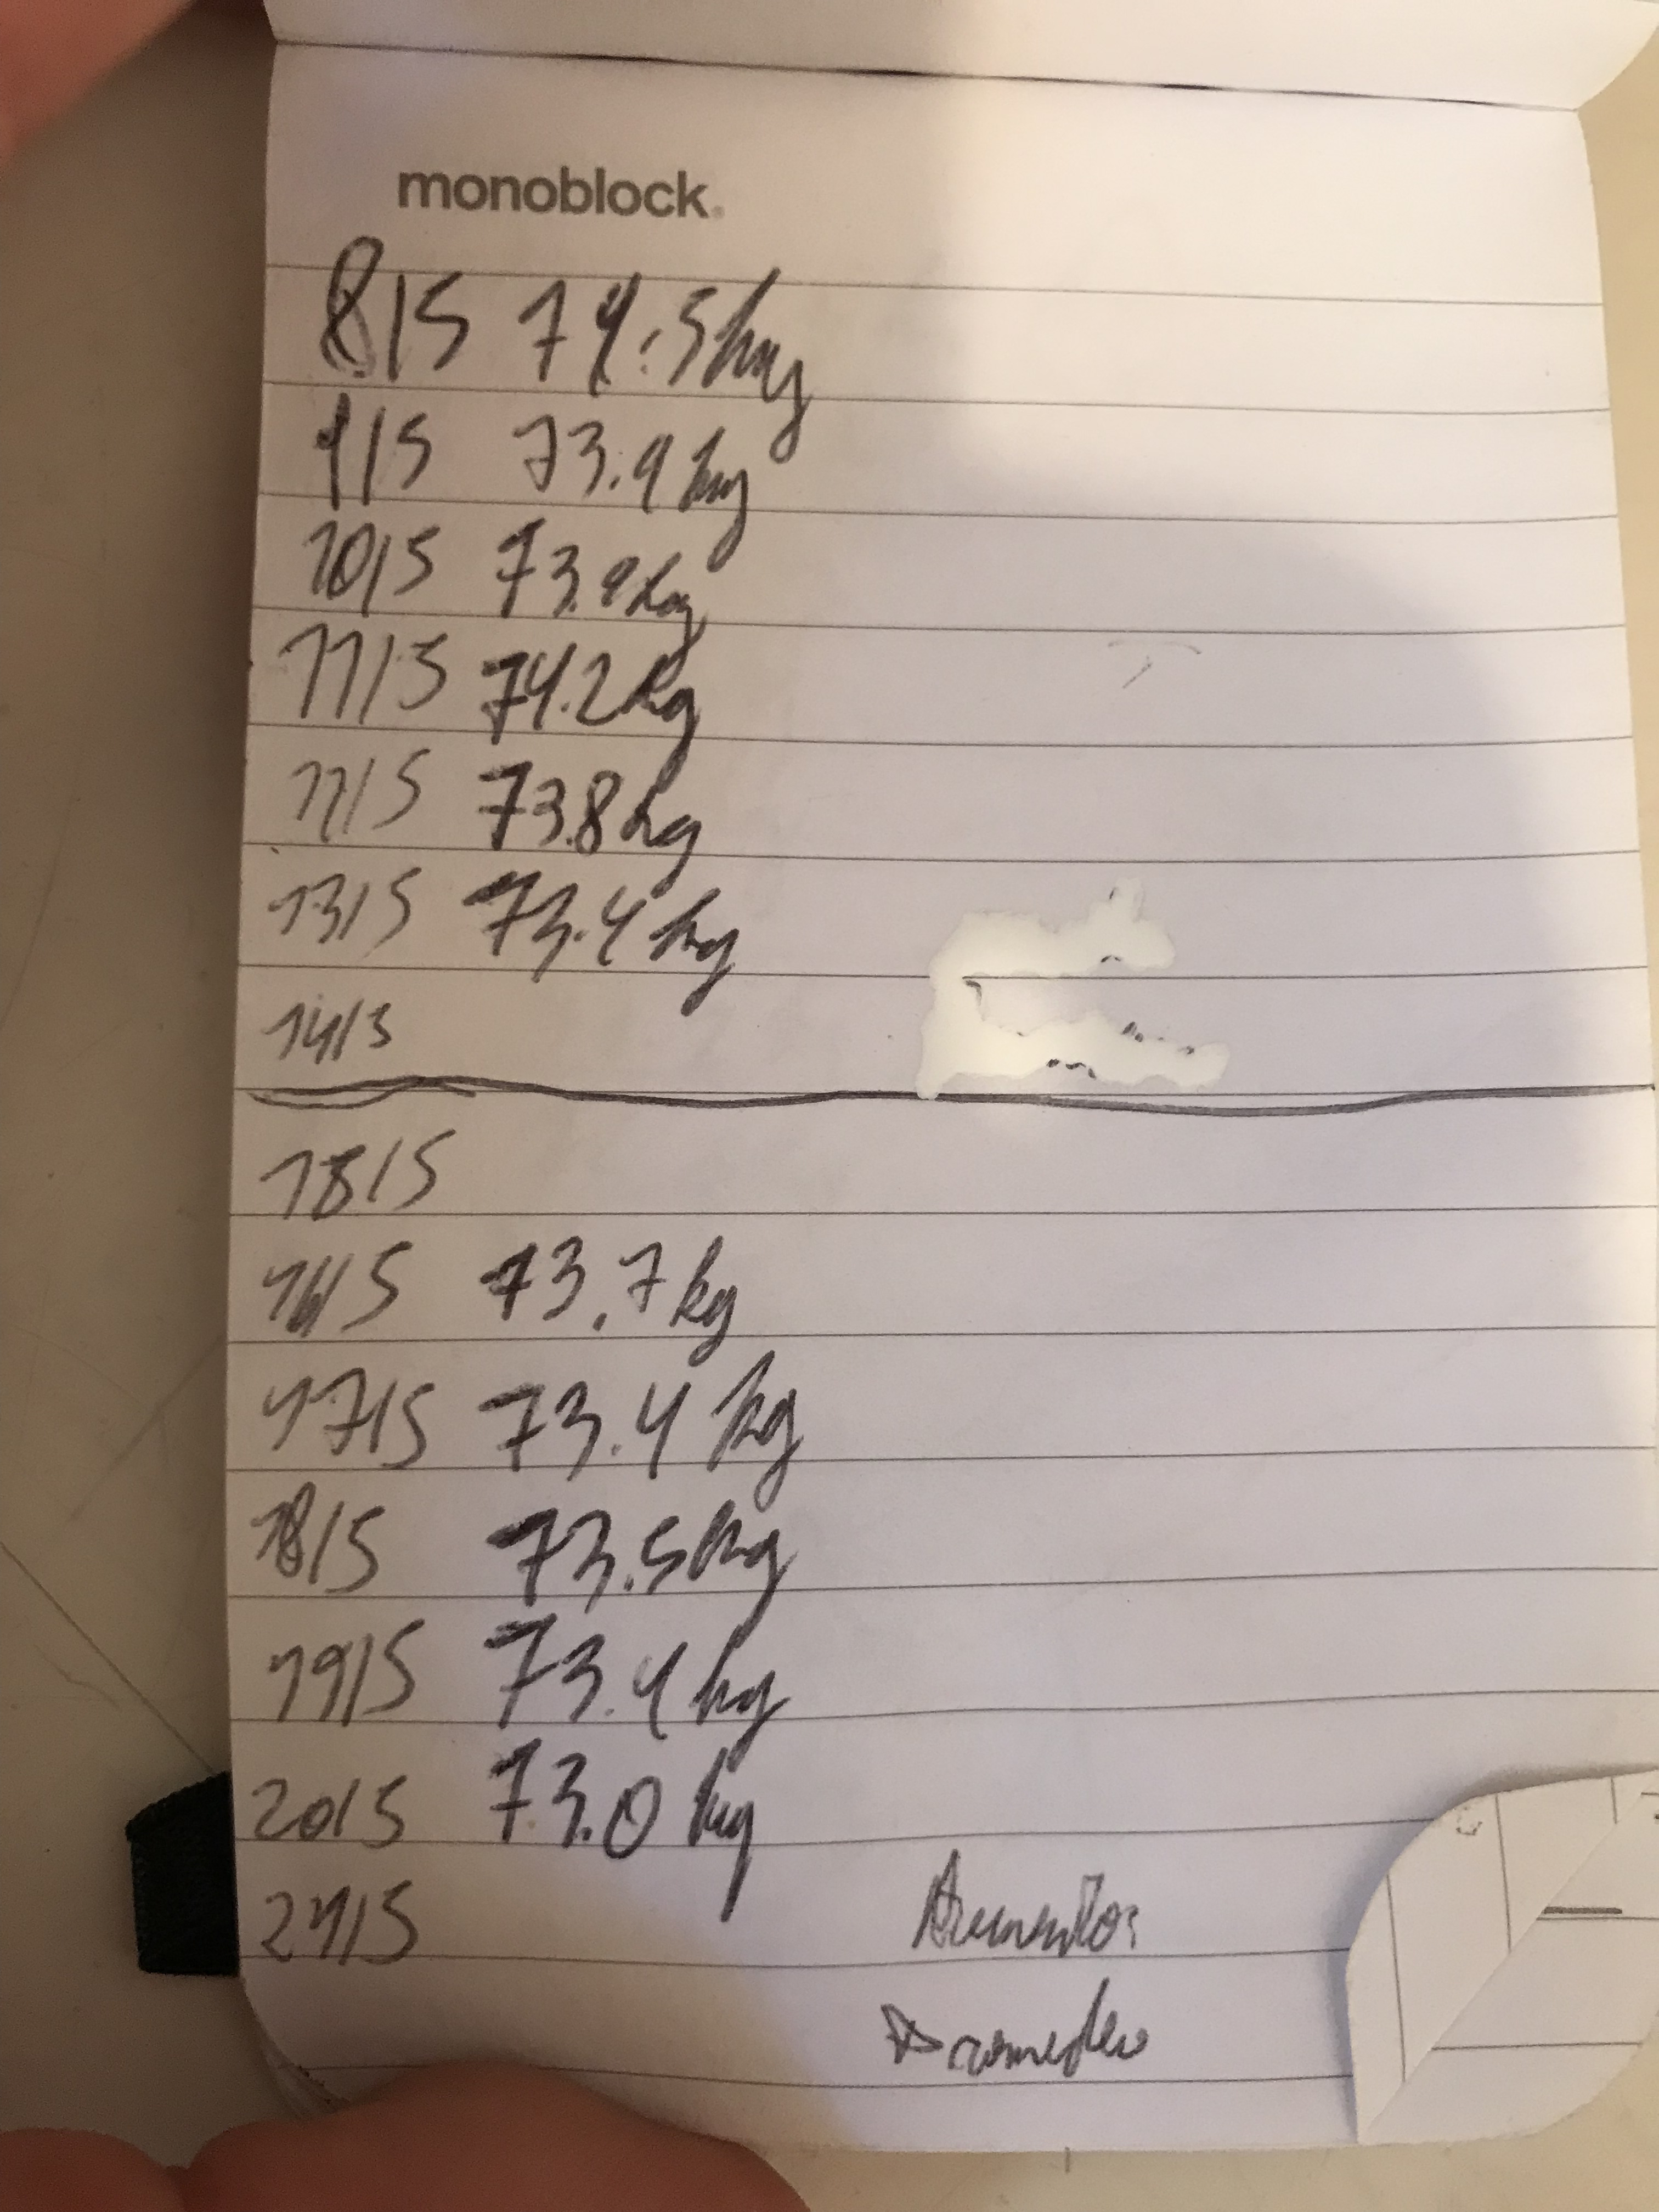 monoblock.
8/5 74.5kg
9/5 73.9 kg
10/5 73.9kg
11/5 74.2kg
12/5 73.8kg
13/5 73.4 kg
14/5
15/5
16/5 73.7kg
17/5 73.4 kg
18/5 73.5kg
19/5 73.4 kg
20/5 73.0 kg
21/5
Aumento:
Promedio